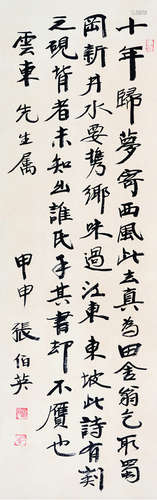 十年歸夢寄西風此去真為田舍翁乞取蜀
岡新井水要攜鄉味過江東東坡此詩有刻
之硯背者未知出誰氏手其書却不贋也
雲東先生属
甲申張伯英